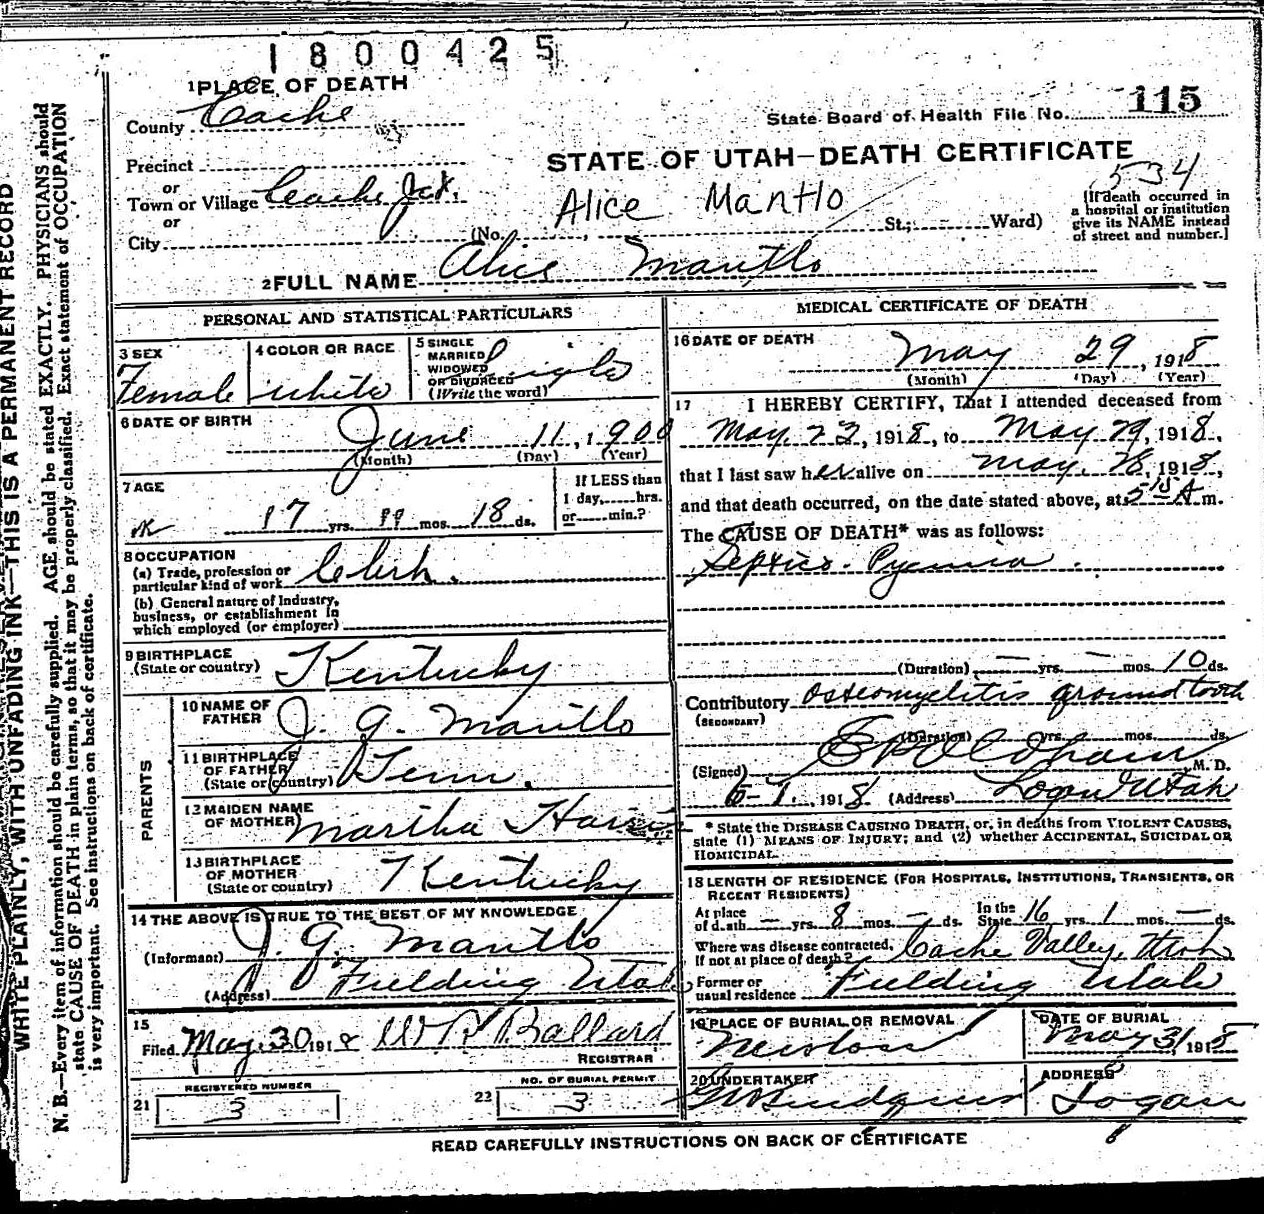 1800425
1 PLACE OF DEATH
County Cache
State Board of Health File No. 115
Precinct
STATE OF UTAH—DEATH CERTIFICATE
534
or
Town or Village Cache Jct.
Alice Mantlo
[If death occurred in
a hospital or institution
give its NAME instead
of street and number.]
or
City (No. , St.; Ward)
2 FULL NAME Alice Mantlo
PERSONAL AND STATISTICAL PARTICULARS
3 SEX
Female
4 COLOR OR RACE
White
5 SINGLE
MARRIED
WIDOWED
OR DIVORCED
(Write the word)
Single
6 DATE OF BIRTH
June 11, 1900
(Month) (Day) (Year)
7 AGE
17 yrs. 11 mos. 18 ds.
If LESS than
1 day, hrs.
or min.?
8 OCCUPATION
(a) Trade, profession or
particular kind of work Clerk.
(b) General nature of Industry,
business, or establishment in
which employed (or employer)
9 BIRTHPLACE
(State or country) Kentucky
PARENTS
10 NAME OF
FATHER J. G. Mantlo
11 BIRTHPLACE
OF FATHER
(State or country) Tenn.
12 MAIDEN NAME
OF MOTHER Martha Harris
13 BIRTHPLACE
OF MOTHER
(State or country) Kentucky
14 THE ABOVE IS TRUE TO THE BEST OF MY KNOWLEDGE
(Informant) J. G. Mantlo
(Address) Fielding Utah
15
Filed May. 30 1918 W R Ballard
REGISTRAR
REGISTERED NUMBER
21 3
NO. OF BURIAL PERMIT
22 3
MEDICAL CERTIFICATE OF DEATH
16 DATE OF DEATH
May 29, 1918
(Month) (Day) (Year)
17 I HEREBY CERTIFY, That I attended deceased from
May. 23, 1918, to May 29, 1918,
that I last saw her alive on May. 28, 1918,
and that death occurred, on the date stated above, at 5 15 A m.
The CAUSE OF DEATH* was as follows:
Septico-Pyemia.
(Duration) — yrs. — mos. 10 ds.
Contributory Osteomyelitis ground tooth
(SECONDARY)
(Duration) yrs. mos. ds.
(Signed) M. D.
6-1. 1918 (Address) Logan Utah
* State the DISEASE CAUSING DEATH, or, in deaths from VIOLENT CAUSES,
state (1) MEANS OF INJURY; and (2) whether ACCIDENTAL, SUICIDAL OR
HOMICIDAL.
18 LENGTH OF RESIDENCE (FOR HOSPITALS, INSTITUTIONS, TRANSIENTS, OR
RECENT RESIDENTS)
At place
of death — yrs. 8 mos. — ds.
In the
State 16 yrs. 1 mos. — ds.
Where was disease contracted,
If not at place of death? Cache Valley, Utah
Former or
usual residence Fielding Utah
19 PLACE OF BURIAL OR REMOVAL
Newton
DATE OF BURIAL
May 31 1918
20 UNDERTAKER
ADDRESS
Logan
READ CAREFULLY INSTRUCTIONS ON BACK OF CERTIFICATE
WRITE PLAINLY, WITH UNFADING INK—THIS IS A PERMANENT RECORD
N. B.—Every item of information should be carefully supplied. AGE should be stated EXACTLY. PHYSICIANS should
state CAUSE OF DEATH in plain terms, so that it may be properly classified. Exact statement of OCCUPATION
is very important. See instructions on back of certificate.